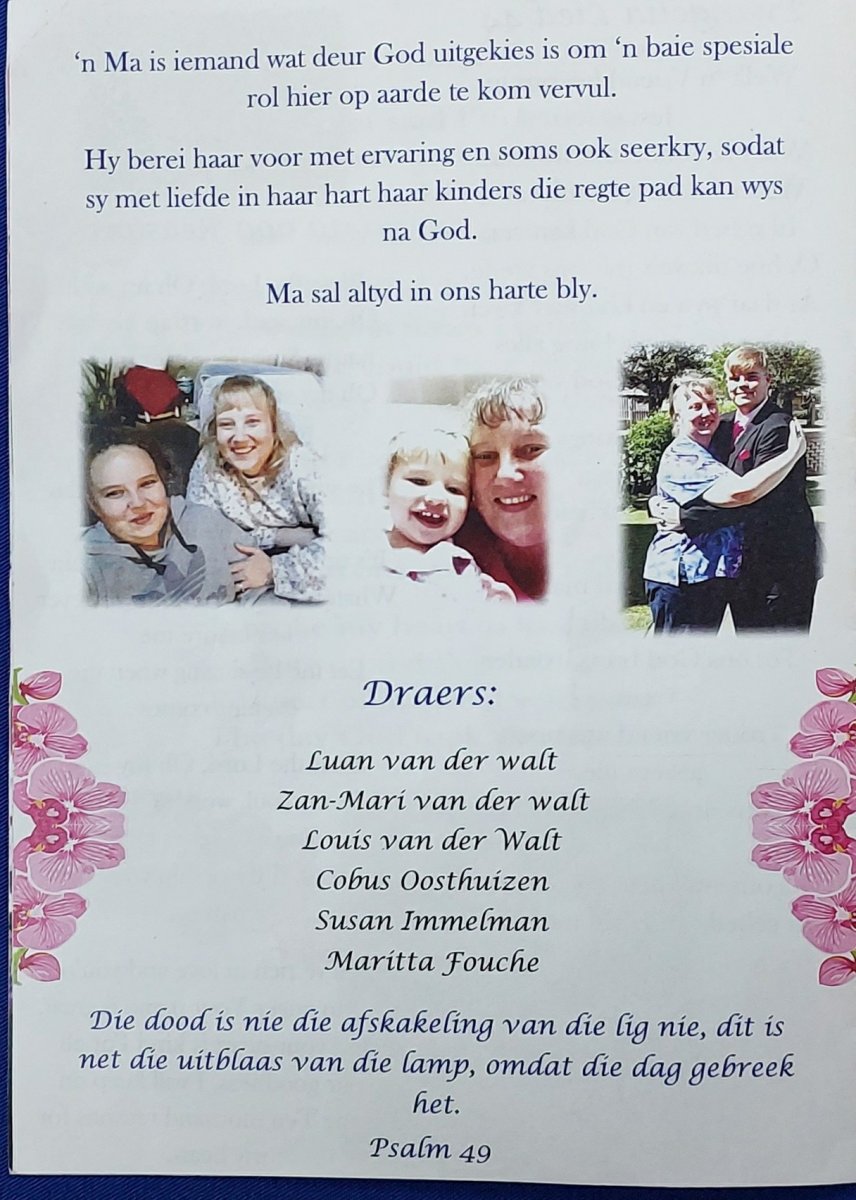 ‘n Ma is iemand wat deur God uitgekies is om ‘n baie spesiale
rol hier op aarde te kom vervul.
Hy berei haar voor met ervaring en soms ook seerkry, sodat
sy met liefde in haar hart haar kinders die regte pad kan wys
na God.
Ma sal altyd in ons harte bly.
Draers:
Luan van der walt
Zan-Mari van der walt
Louis van der Walt
Cobus Oosthuizen
Susan Immelman
Maritta Fouche
Die dood is nie die afskakeling van die lig nie, dit is
net die uitblaas van die lamp, omdat die dag gebreek
het.
Psalm 49